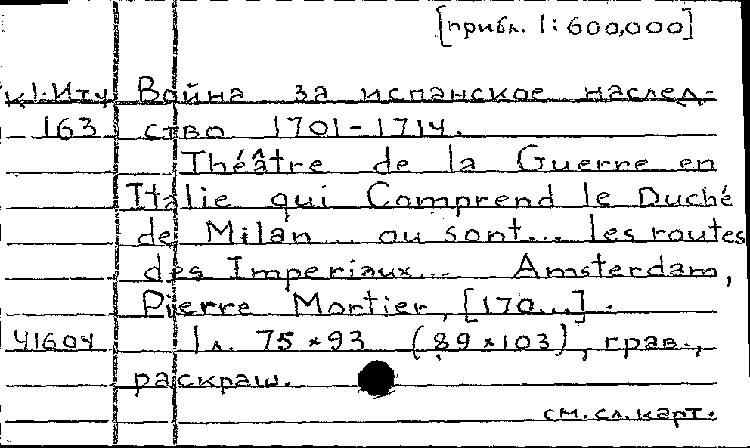 [прибл. 1:600,000]
К1.Иту Война за испанское наслед-
163 ство 1701-1714.
Théâtre de la Guerre en
Italie qui Comprend le Duché
de Milan... ou sont... les routes
des Imperiaux... Amsterdam,
Pierre Mortier, [170...].
41604 1 л. 75×93 (89×103), грав.,
раскраш.
см. сл. карт.